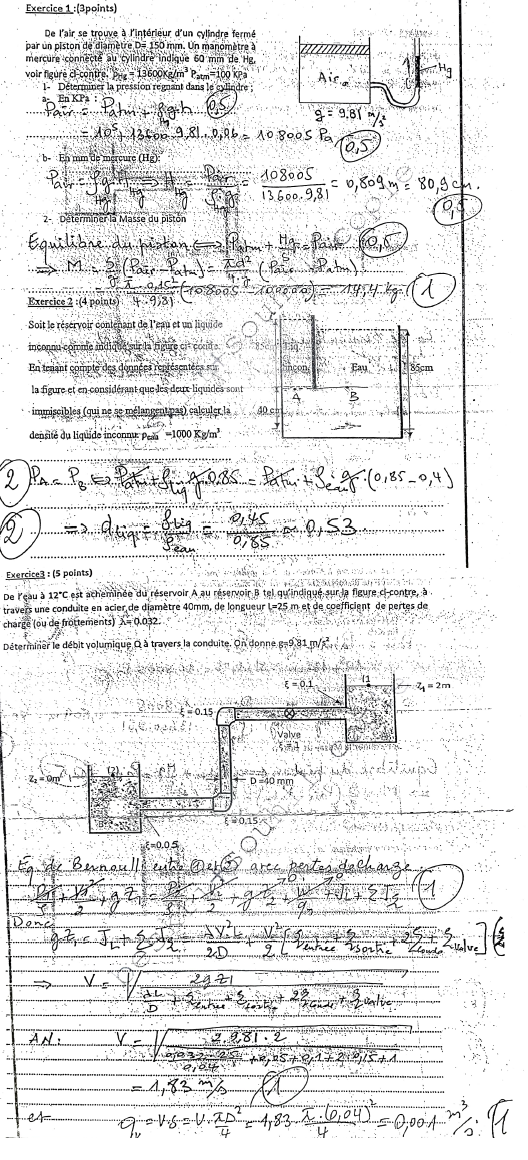 Exercice 1 :(3points)
De l'air se trouve à l'intérieur d'un cylindre fermé
par un piston de diamètre D= 150 mm. Un manomètre à
mercure connecté au cylindre indique 60 mm de Hg,
voir figure ci-contre. ρHg = 13600Kg/m³ Patm=100 kPa
Air
Hg
g = 9.81 m/s²
1- Déterminer la pression régnant dans le cylindre ;
a- En KPa :
Pair = Patm + ρHg g h (0,5)
= 10⁵ + 13600 . 9,81 . 0,06 = 108005 Pa (0,5)
b- En mm de mercure (Hg):
Pair = ρHg g HHg ⟹ HHg = Pair / ρHg . g = 108005 / 13600 . 9,81 = 0,809 m = 80,9 cm.
(0,5)
2- Déterminer la Masse du piston
Equilibre du piston ⟺ Patm + Mg/S = Pair (0,5)
⟹ M = S/g (Pair - Patm) = πd²/4.g (Pair - Patm)
= π . 0,15² / 4 . 9,81 (108005 - 100000) = 14,4 kg (1)
Exercice 2 :(4 points)
Soit le réservoir contenant de l'eau et un liquide
inconnu comme indiqué sur la figure ci- contre.
En tenant compte des données représentées sur
la figure et en considérant que les deux liquides sont
immiscibles (qui ne se mélangent pas) calculer la
densité du liquide inconnu. ρeau =1000 Kg/m³
Eau
85cm
A
B
40 cm
(2) PA = PB ⟺ Patm + ρliq g 0,85 = Patm + ρeau g (0,85 - 0,4)
(2) ⟹ dliq = ρliq / ρeau = 0,45 / 0,85 ≈ 0,53
Exercice3 : (5 points)
De l'eau à 12°C est acheminée du réservoir A au réservoir B tel qu'indiqué sur la figure ci-contre, à
travers une conduite en acier de diamètre 40mm, de longueur L=25 m et de coefficient de pertes de
charge (ou de frottements) λ= 0.032.
Déterminer le débit volumique Q à travers la conduite. On donne g=9,81 m/s².
ξ = 0.1
(1
Z₁ = 2m
ξ = 0.15
Valve
Z₂ = 0m
D =40 mm
ξ = 0.15
ξ=0.05
Eq. de Bernoulli entre ① et ② avec pertes de charge :
P₁/ρ + V₁²/2 + g Z₁ = P₂/ρ + V₂²/2 + g Z₂ + W/qm + JL + Σ Js (1)
Donc
gZ₁ = JL + Σ Js = λV²L/2D + V²/2 [ξentrée + ξsortie + 2ξcoude + ξvalve]
⟹ V = √ 2gZ1 / λL/D + ξentrée + ξsortie + 2ξcoude + ξvalve
AN: V = √ 2.9,81 . 2 / 0,032 . 25/0,04 + 0,05 + 0,1 + 2.0,15 + 1
= 1,83 m/s (1)
et qv = V.S = V. πD²/4 = 1,83 . π.(0,04)²/4 = 0,001 m³/s. (1